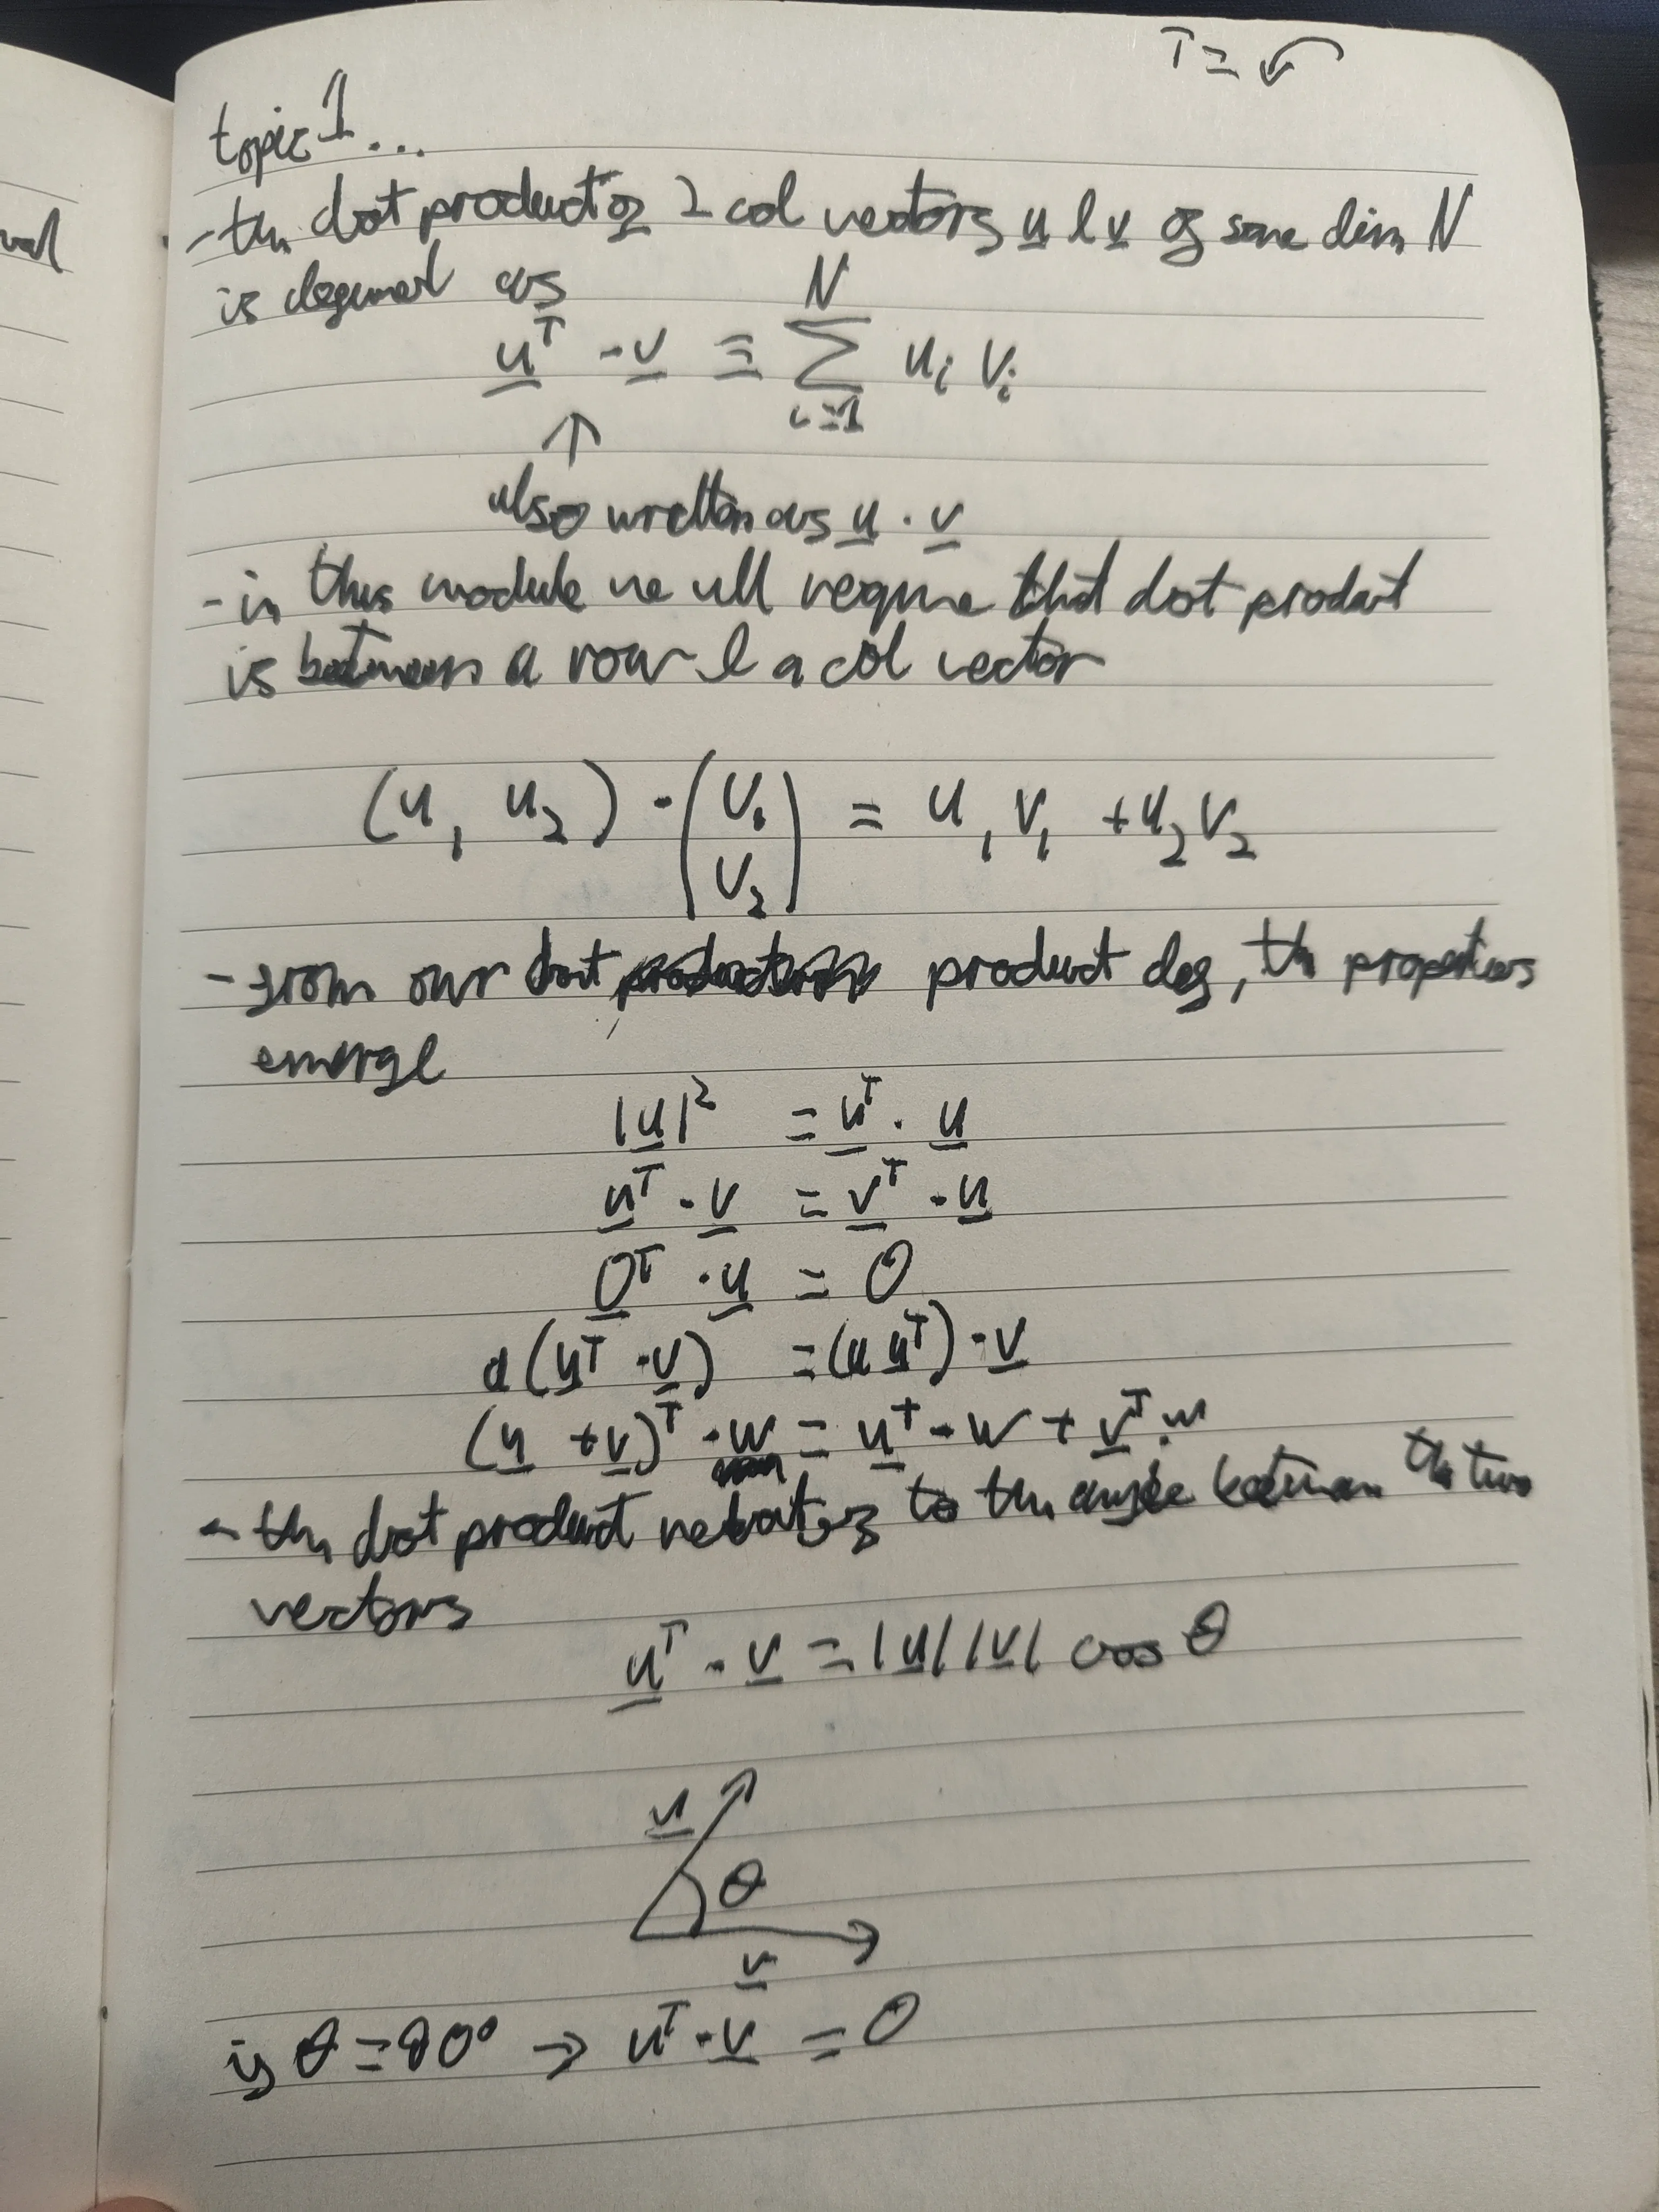 T = ↶
topic 1...
- the dot product of 2 col vectors u & v of same dim N
is defined as
u^T · v ≡ ∑_{i=1}^{N} u_i v_i
↑
also written as u · v
- in this module we all require that dot product
is between a row & a col vector
(u_1 u_2) · (v_1 v_2) = u_1 v_1 + u_2 v_2
- from our dot product def, th properties
emerge
|u|² = u^T · u
u^T · v = v^T · u
0^T · u = 0
a(u^T · v) = (a u^T) · v
(u + v)^T · w = u^T · w + v^T · w
- the dot product relates to the angle between the two
vectors
u^T · v = |u| |v| cos θ
u
θ
v
if θ = 90° → u^T · v = 0